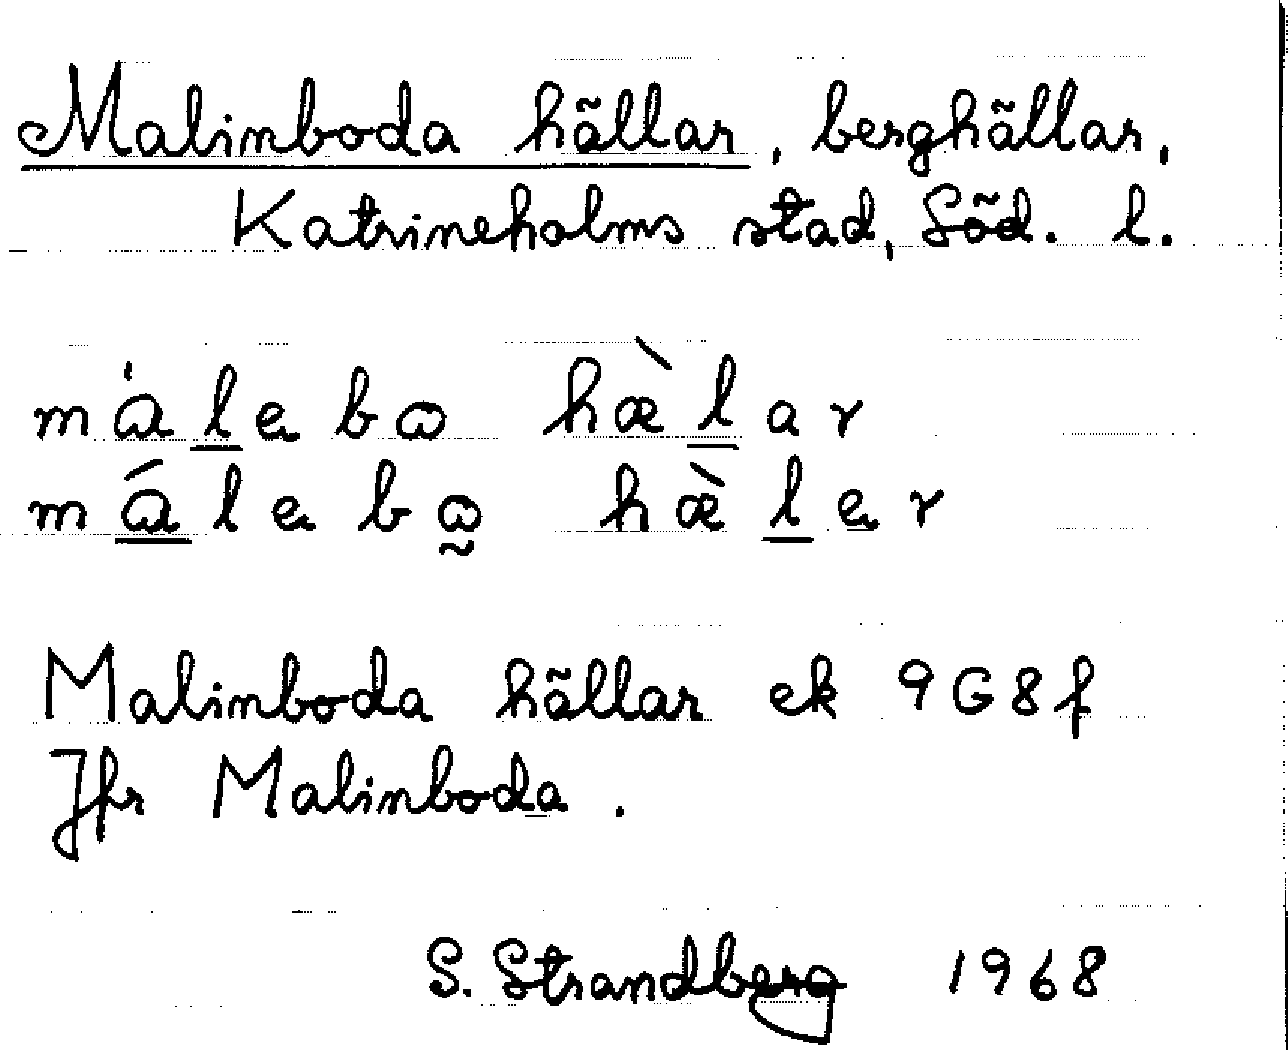 Malinboda hällar, berghällar,
Katrineholms stad, Söd. l.
má̱lebɷ hæ̀ḻar
mɑ̱́lebɷ̰ hæ̀ḻer
Malinboda hällar ek 9G8f
Jfr Malinboda.
S. Strandberg 1968